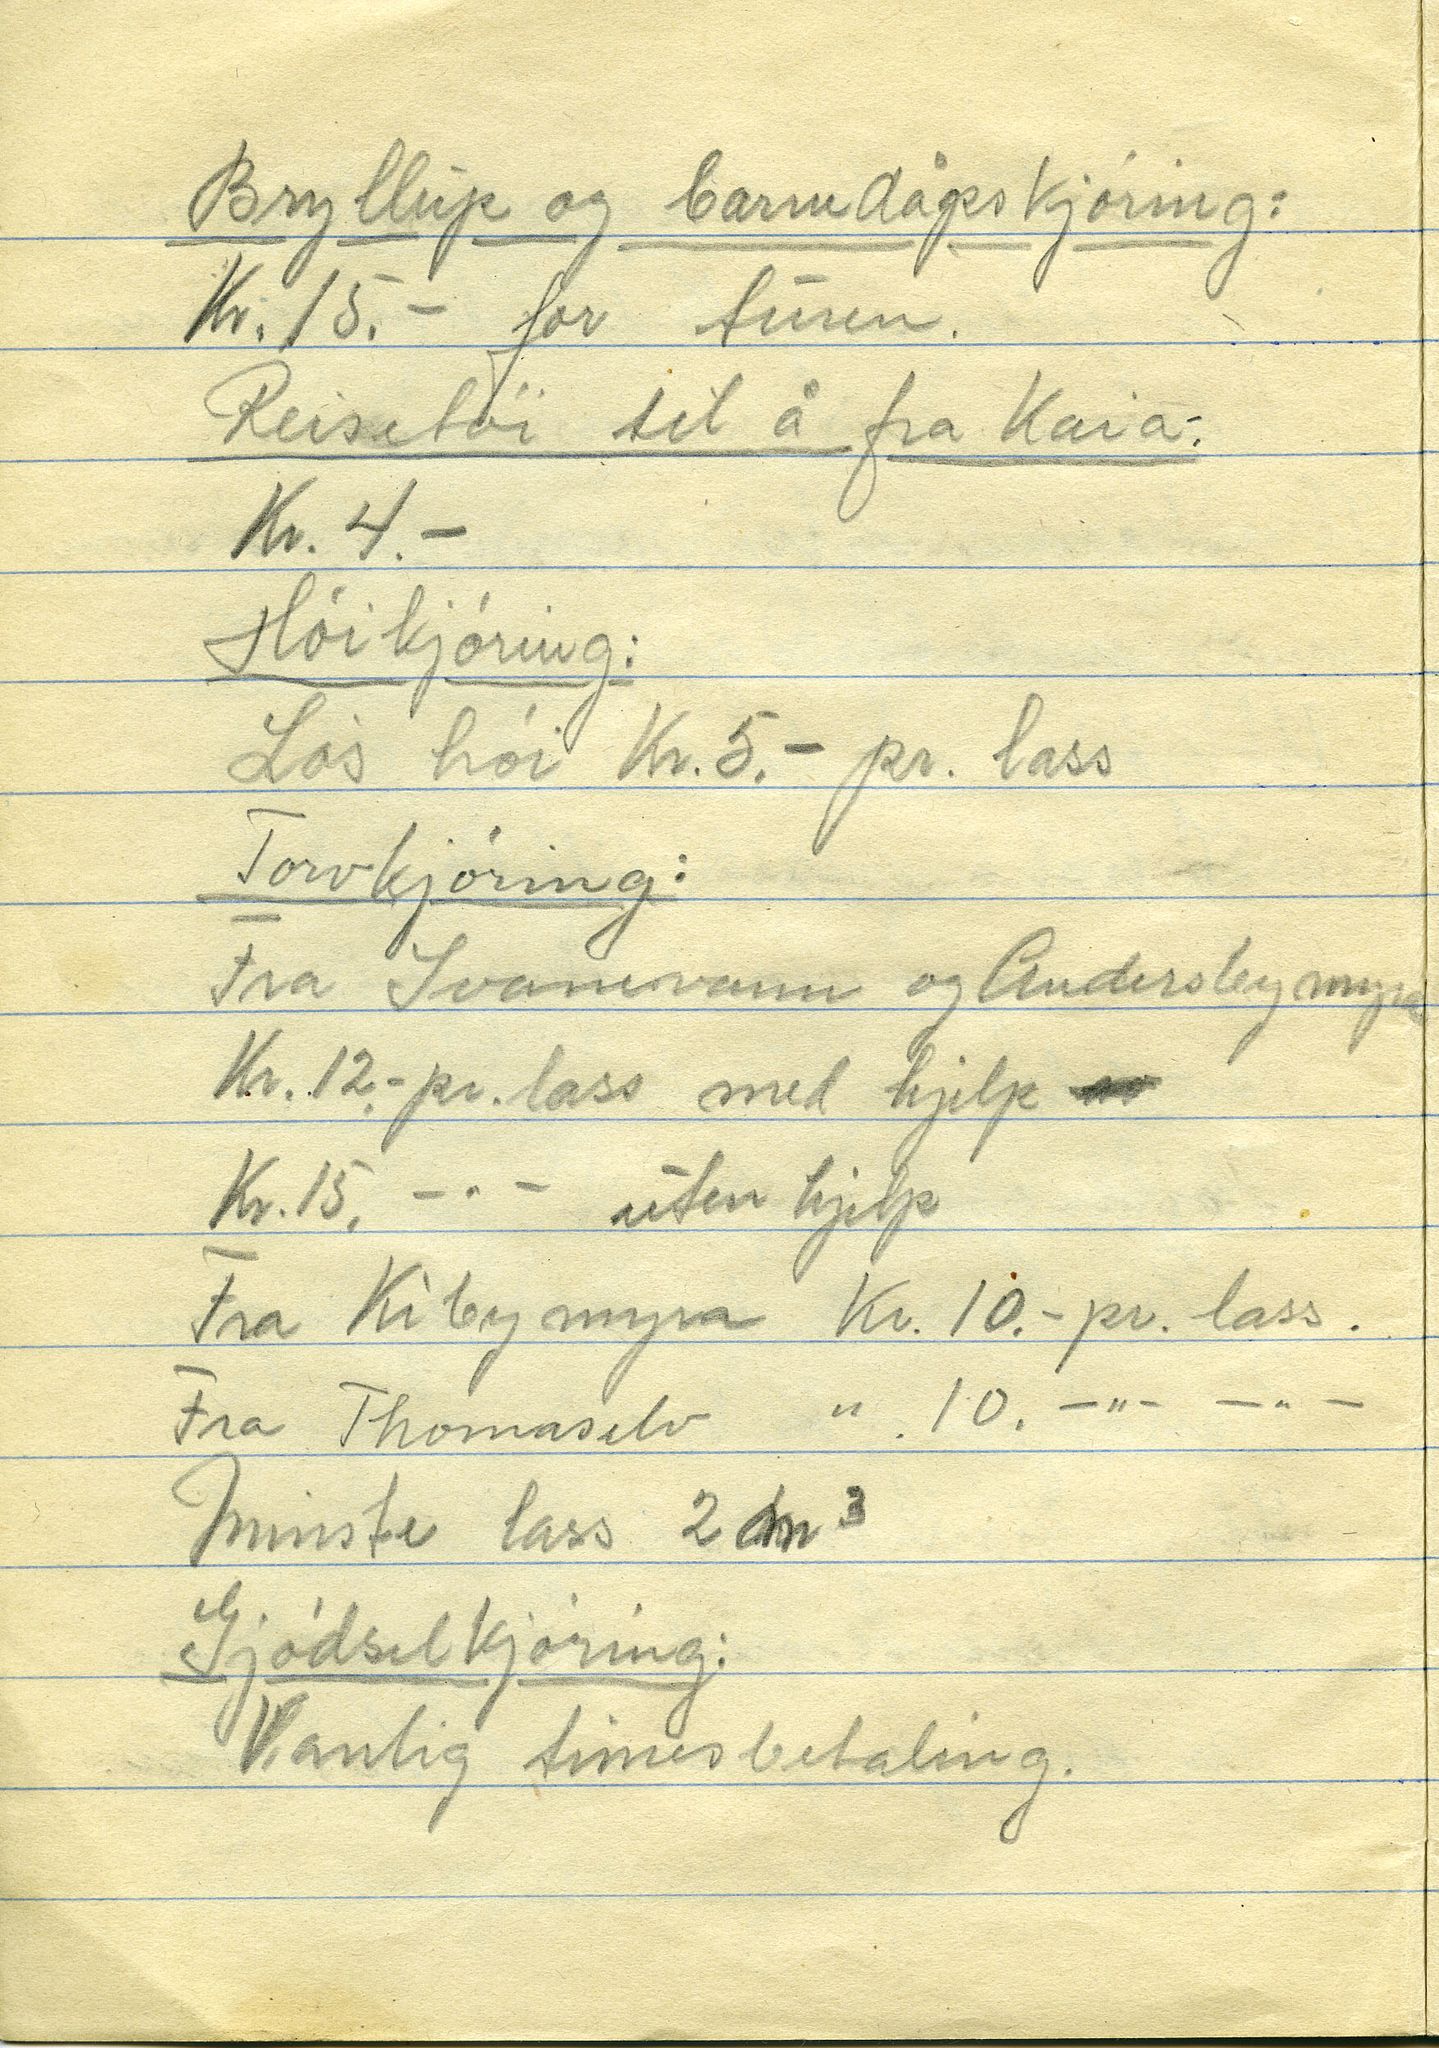 Bryllup og barnedåpskjóring:
Kr. 15.- for turen.
Reisetói til å fra Kaia:
Kr. 4.-
Hóikjóring:
Lós hói Kr. 5.- pr. lass
Torvkjóring:
Fra Svanevann og Andersbymyra
Kr. 12.- pr. lass med hjelp
Kr. 15. -"- uten hjelp
Fra Kibymyra Kr. 10.- pr. lass.
Fra Thomaselv " . 10. -"- -"-
Minste lass 2 m³
Gjódselkjóring:
Vanlig timesbetaling.